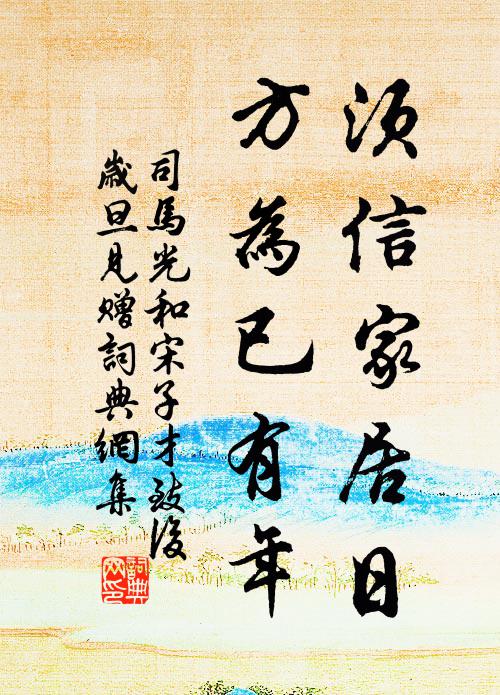 須信家居日
方為已有年
司馬光和宋子才致後
歲旦見贈詞典網集
詞典
网印